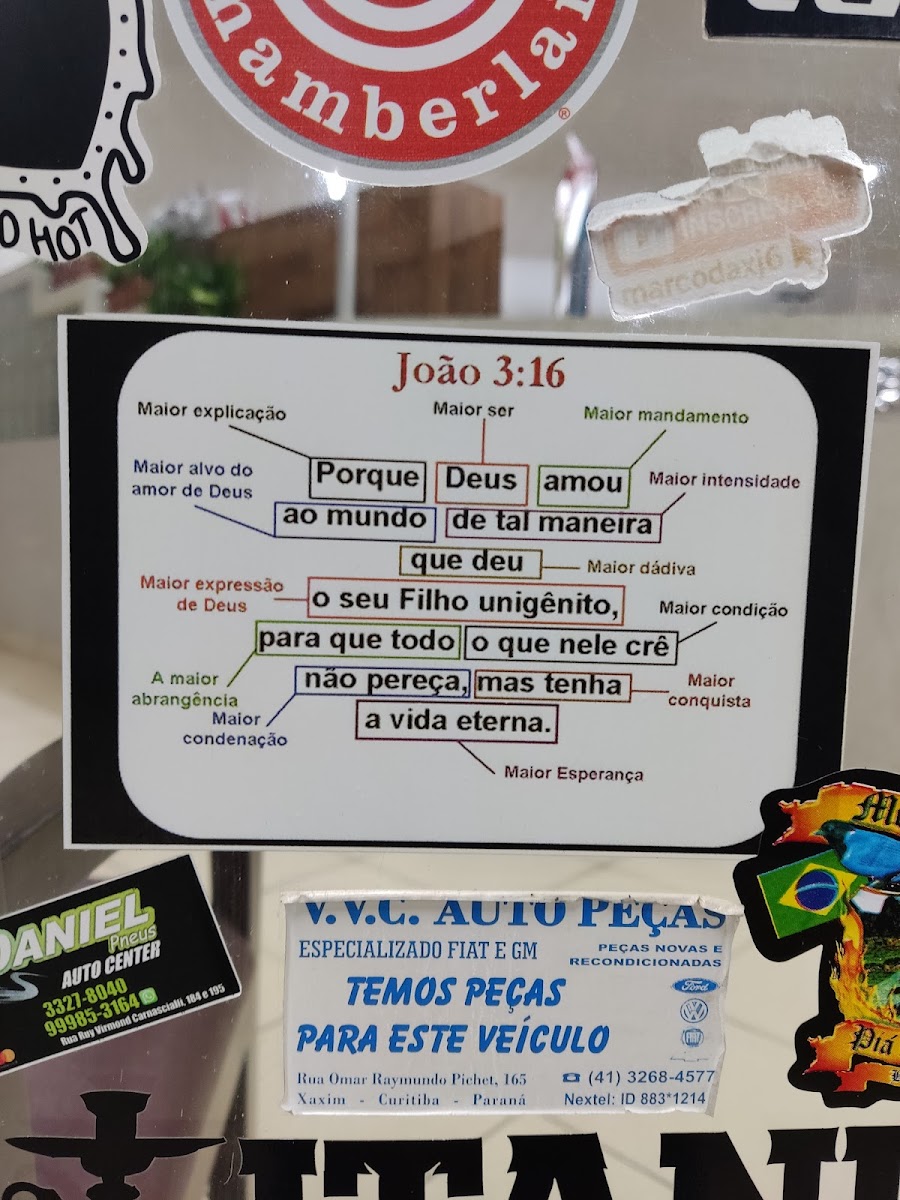 hamberlai
®
O HOT
marcodaxj6
João 3:16
Maior explicação
Maior ser
Maior mandamento
Maior alvo do
amor de Deus
Porque Deus amou
Maior intensidade
ao mundo de tal maneira
que deu
Maior dádiva
Maior expressão
de Deus
o seu Filho unigênito,
Maior condição
para que todo o que nele crê
A maior
abrangência
não pereça, mas tenha
Maior
conquista
Maior
condenação
a vida eterna.
Maior Esperança
DANIEL
Pneus
AUTO CENTER
3327-8040
99985-3164
Rua Ruy Virmond Carnascialli, 184 e 195
V.V.C. AUTO PEÇAS
ESPECIALIZADO FIAT E GM
PEÇAS NOVAS E
RECONDICIONADAS
TEMOS PEÇAS
PARA ESTE VEÍCULO
Ford
FIAT
Rua Omar Raymundo Pichet, 165
(41) 3268-4577
Xaxim - Curitiba - Paraná
Nextel: ID 883*1214
Piá
ITANI